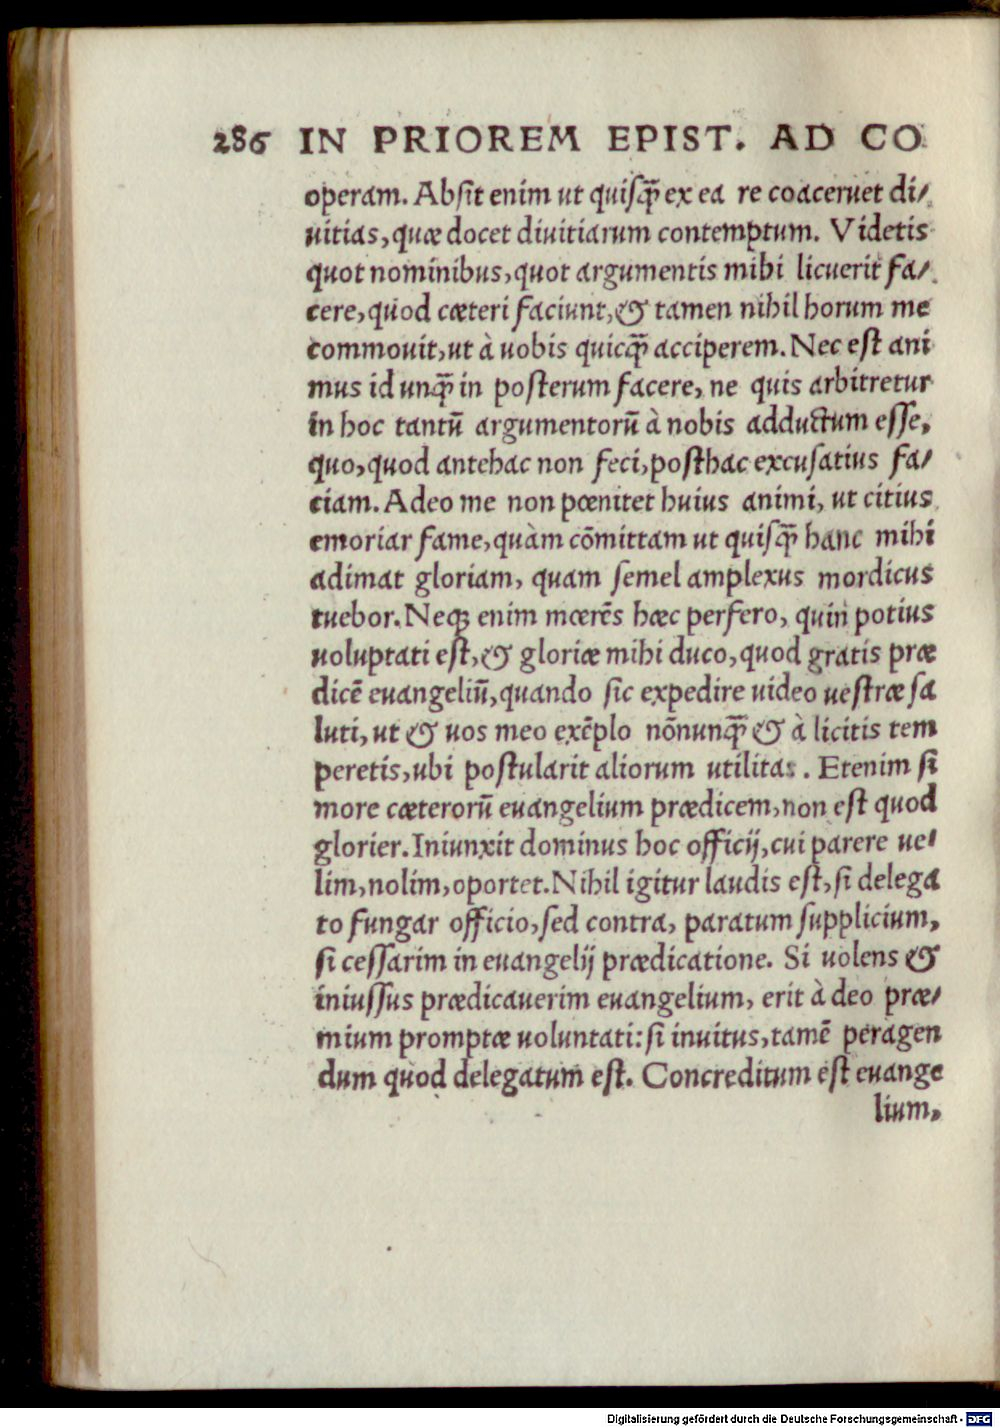 286 IN PRIOREM EPIST. AD CO
operam. Absit enim ut quisq̃ ex ea re coaceruet di/
uitias, quæ docet diuitiarum contemptum. Videtis
quot nominibus, quot argumentis mihi licuerit fa/
cere, quod cæteri faciunt, & tamen nihil horum me
commouit, ut à uobis quicq̃ acciperem. Nec est ani
mus id unq̃ in posterum facere, ne quis arbitretur
in hoc tantũ argumentorũ à nobis adductum esse,
quo, quod antehac non feci, posthac excusatius fa/
ciam. Adeo me non pœnitet huius animi, ut citius
emoriar fame, quàm cõmittam ut quisq̃ hanc mihi
adimat gloriam, quam semel amplexus mordicus
tuebor. Neq; enim mœrẽs hæc perfero, quin potius
uoluptati est, & gloriæ mihi duco, quod gratis præ
dicẽ euangeliũ, quando sic expedire uideo uestræ sa
luti, ut & uos meo exẽplo nõnunq̃ & à licitis tem
peretis, ubi postularit aliorum utilitas. Etenim si
more cæterorũ euangelium prædicem, non est quod
glorier. Iniunxit dominus hoc officij, cui parere ue/
lim, nolim, oportet. Nihil igitur laudis est, si delega
to fungar officio, sed contra, paratum supplicium,
si cessarim in euangelij prædicatione. Si uolens &
iniussus prædicauerim euangelium, erit à deo præ/
mium promptæ uoluntati: si inuitus, tamẽ peragen
dum quod delegatum est. Concreditum est euange
lium,
Digitalisierung gefördert durch die Deutsche Forschungsgemeinschaft - DFG